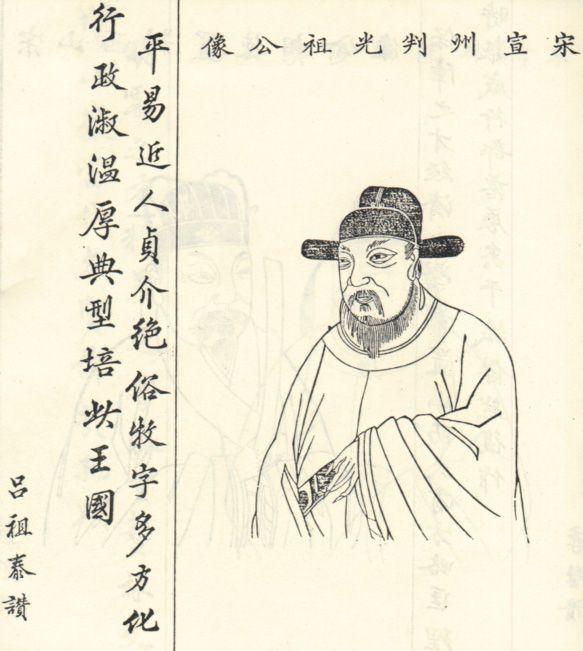 宋宣州判光祖公像
平易近人貞介绝俗牧字多方化
行政淑温厚典型培㳄王國
吕祖泰讃